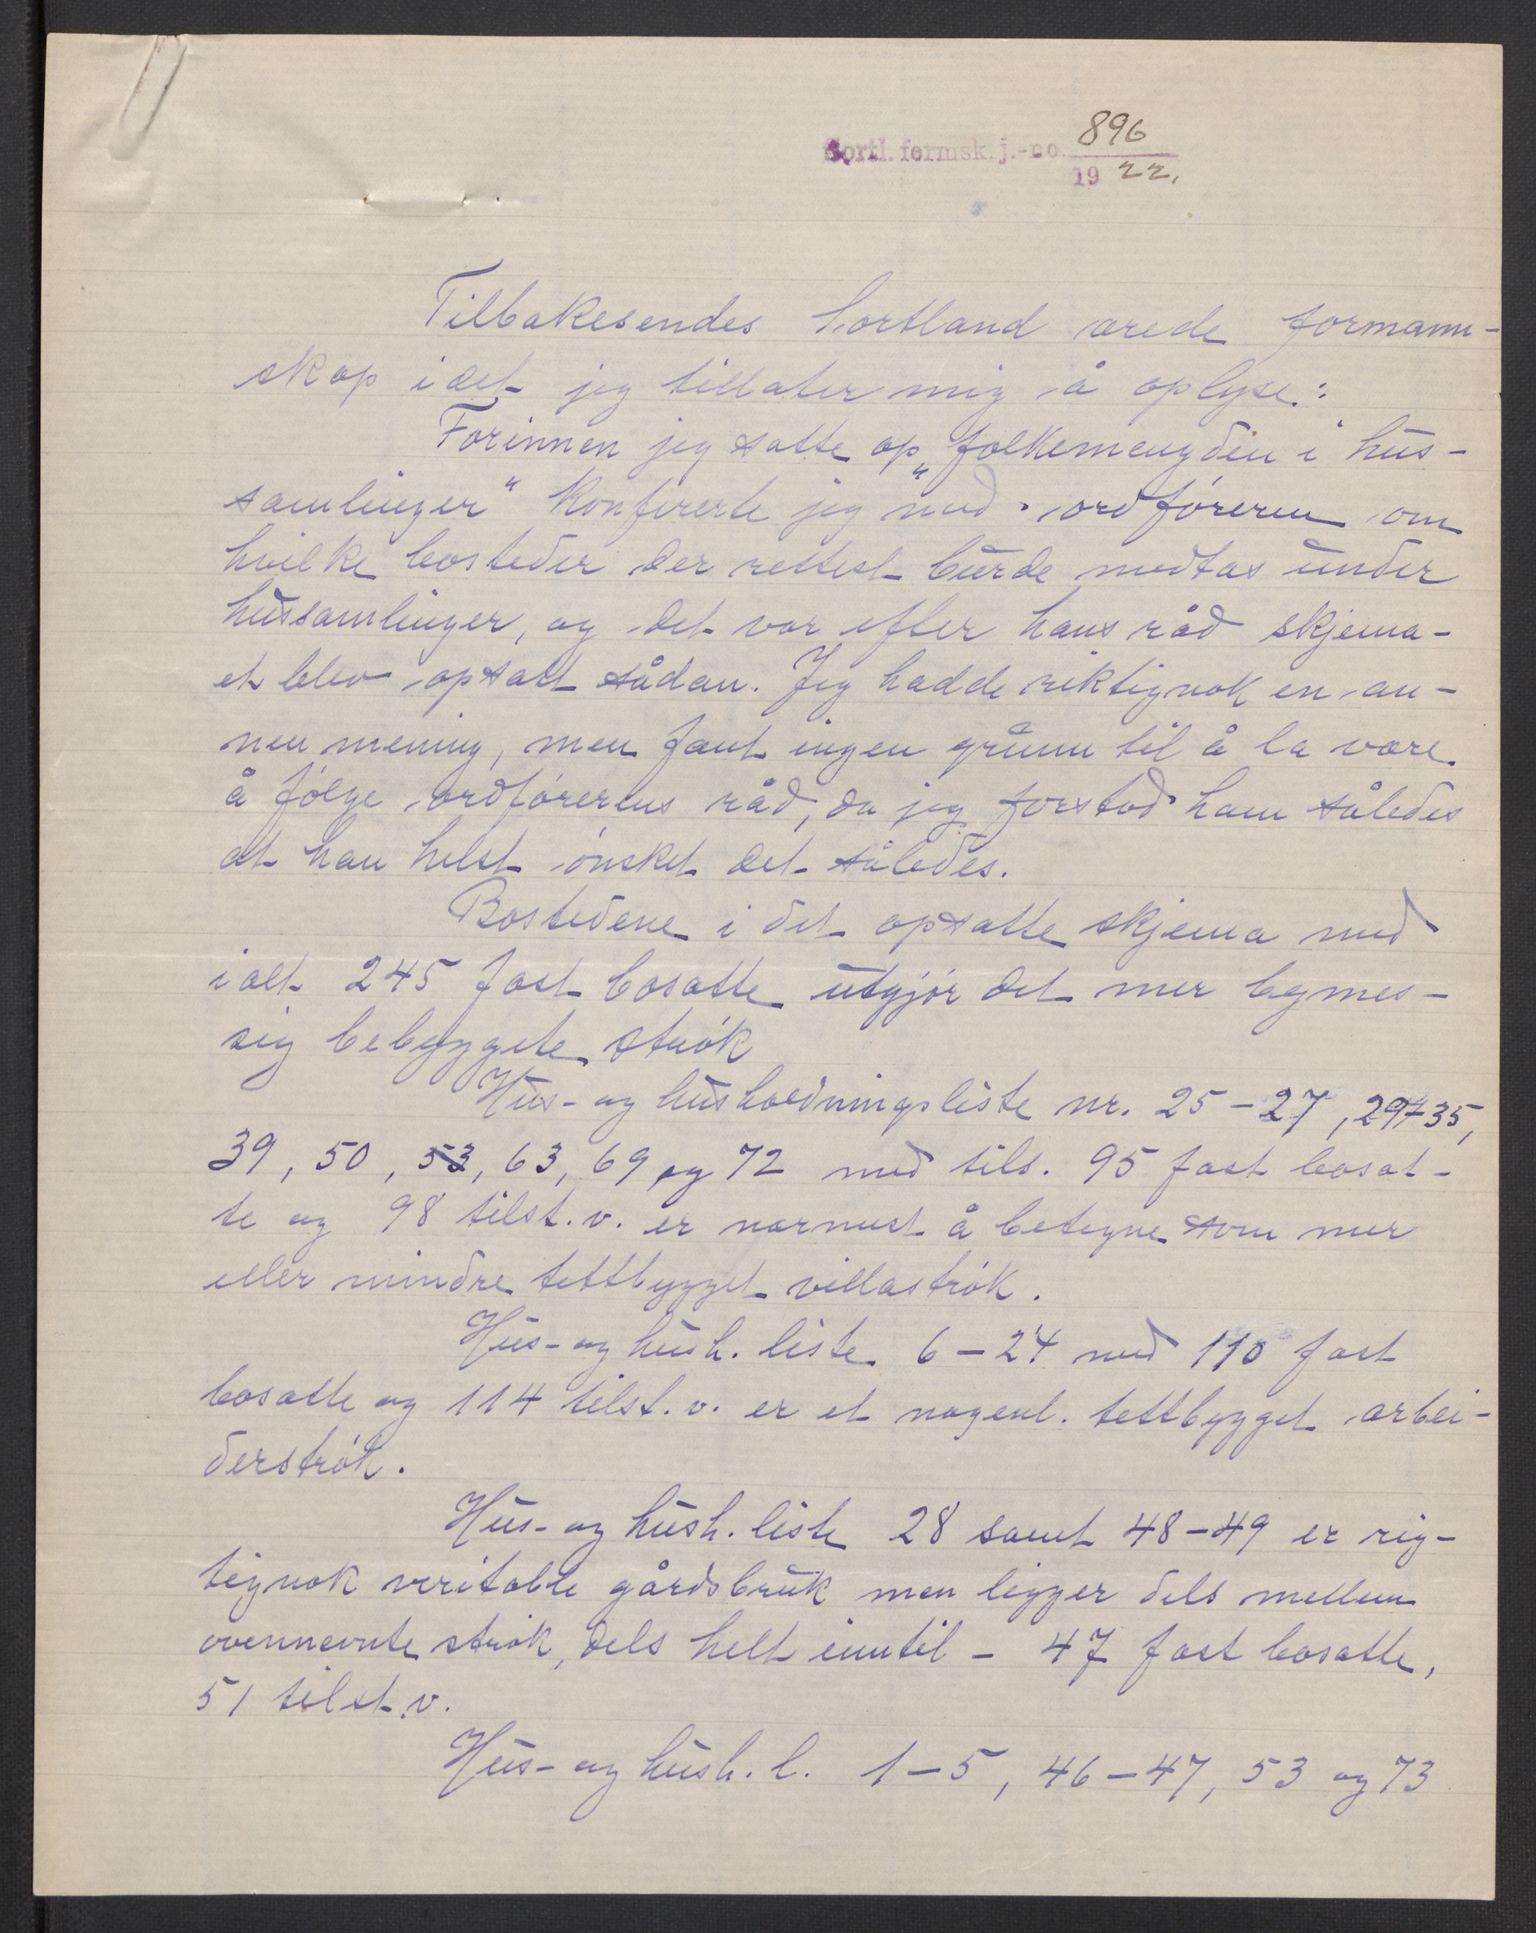 Sortl. formsk. j.-no. 896
19 22.
Tilbakesendes Sortland ærede formann-
skap idet jeg tillater mig å oplyse:
Forinnen jeg satte op „folkemengden i hus-
samlinger" konfererte jeg med ordføreren om
hvilke bosteder der rettest burde medtas under
hussamlinger, og det var efter hans råd skjema-
et blev opsatt sådan. Jeg hadde riktignok en an-
nen mening, men fant ingen grunn til å la være
å følge ordførerens råd, da jeg forstod ham således
at han helst ønsket det således.
Bostedene i det opsatte skjema med
ialt 245 fast bosatte utgjør det mer bymes-
sig bebyggete strøk
Hus- og husholdningsliste nr. 25-27, 29-35,
39, 50, 53, 63, 69 og 72 med tils. 95 fast bosat-
te og 98 tilst. v. er nærmest å betegne som mer
eller mindre tettbygget villastrøk.
Hus- og hush. liste 6-24 med 110 fast
bosatte og 114 tilst. v. er et nogenl. tettbygget arbei-
derstrøk.
Hus- og hush. liste 28 samt 48-49 er rig-
tignok veritable gårdsbruk men ligger dels mellem
ovennevnte strøk, dels helt inntil - 47 fast bosatte,
51 tilst. v.
Hus- og hush. l. 1-5, 46-47, 53 og 73